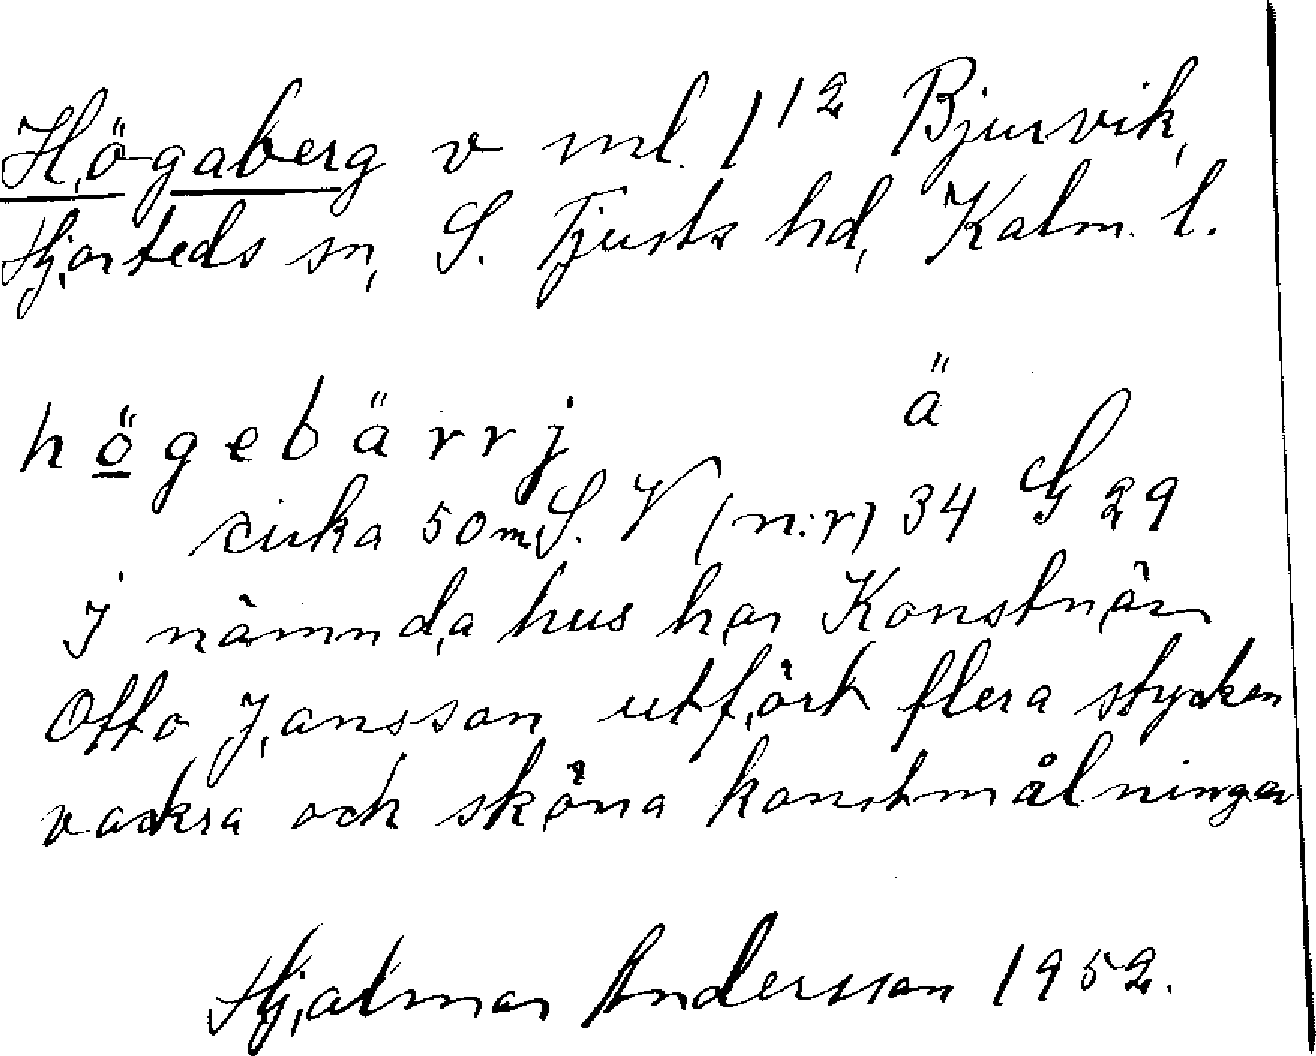 Högaberg v ml. 1 12 Bjursvik,
Hjorteds sn, S. Tjusts hd, Kalm. l.
ä
högebärrj
cirka 50 m S. V (n:r) 34 G 29
I nämnda hus har Konstnär
Otto Jansson utfört flera stycken
vackra och sköna konstmålningar
Hjalmar Andersson 1952.